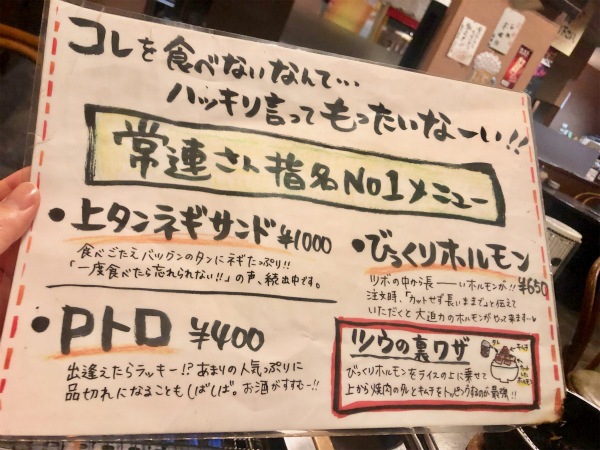 コレを食べないなんて…
ハッキリ言ってもったいなーい!!
常連さん指名No1メニュー
・上タンネギサンド ¥1000
食べごたえバツグンのタンにネギたっぷり!!
「一度食べたら忘れられない!!」の声、続出中です。
・びっくりホルモン
¥650
ツボの中から長――いホルモンが!!
注文時、「カットせず長いままで」と伝えて
いただくと大迫力のホルモンがやって来ます…
・Pトロ ¥400
出逢えたらラッキー!?あまりの人気っぷりに
品切れになることもしばしば。お酒がすすむ〜!!
ツウの裏ワザ
びっくりホルモンをライスの上に乗せて
上から焼肉のタレとキムチをトッピングするのが最強!!
タレ
キムチ